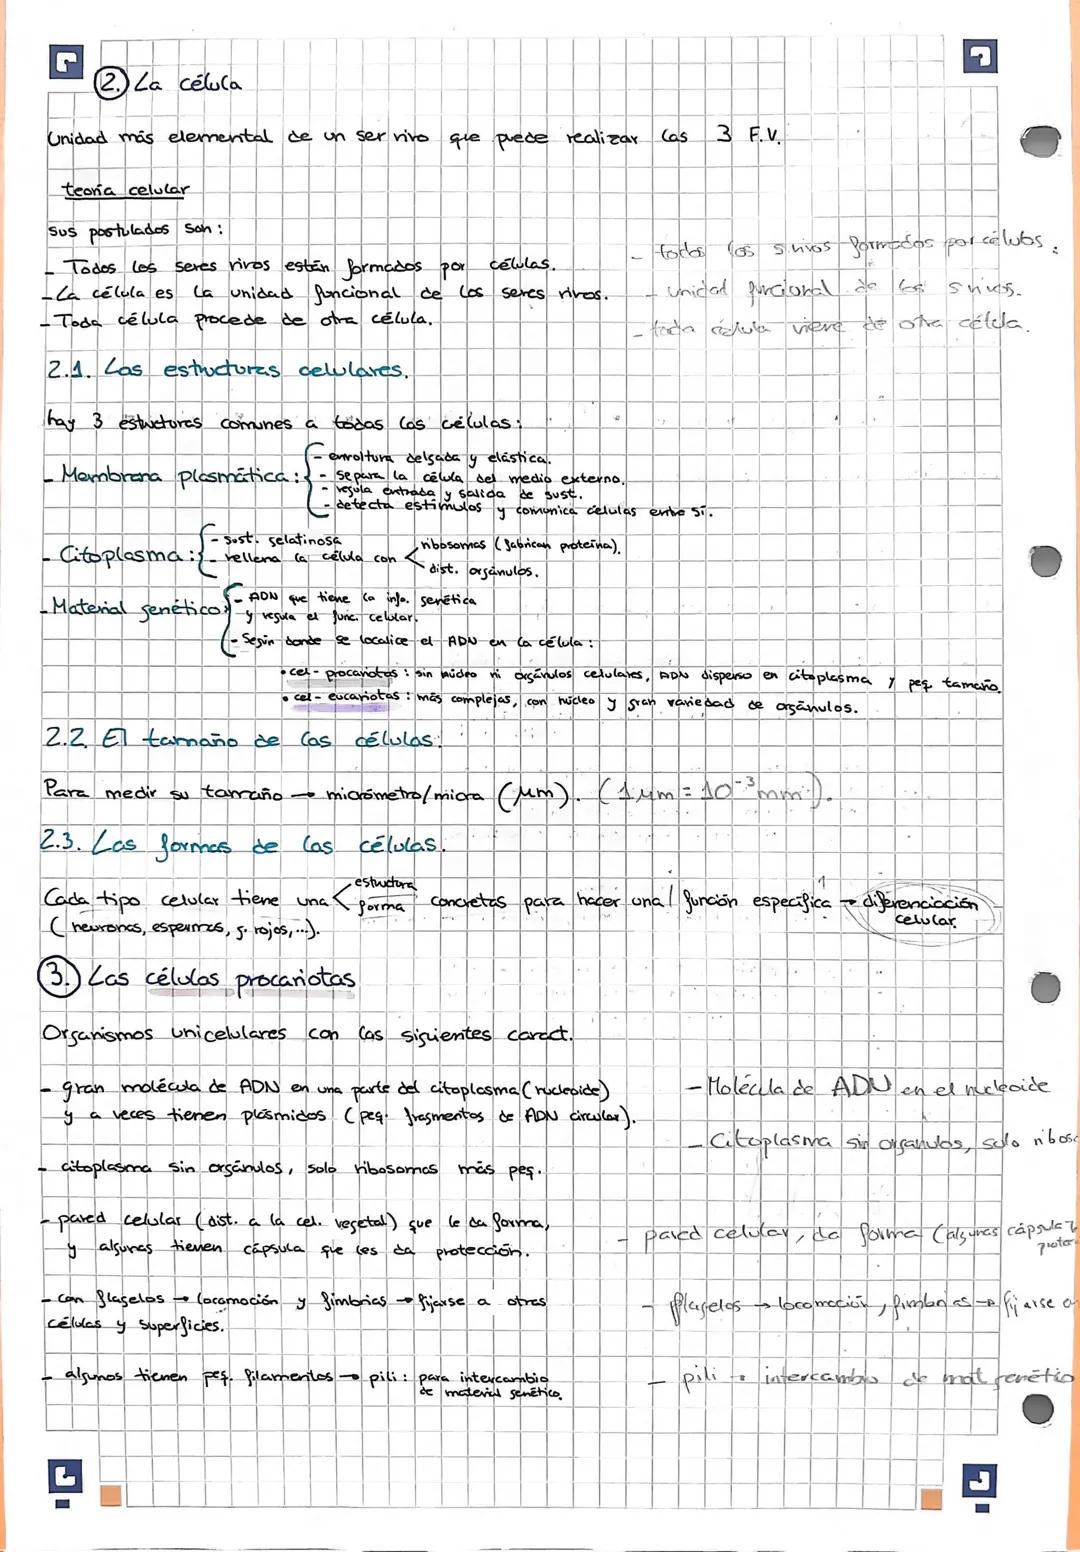 2. La célula
Unidad más elemental de un ser vivo que puede realizar las 3 F.V.
teoría celular
sus postulados son:
- Todos los seres vivos están formados por células.
- La célula es la unidad funcional de los seres vivos.
- Toda célula procede de otra célula.
- todos los s.vivos formados por células.
- unidad funcional de los s vivos.
- toda célula viene de otra célula.
2.1. Las estructuras celulares.
hay 3 estructuras comunes a todas las células:
- Membrana plasmática:
- envoltura delgada y elástica.
- separa la célula del medio externo.
- regula entrada y salida de sust.
- detecta estímulos y comunica células entre sí.
- Citoplasma:
- sust. gelatinosa
- rellena la célula con
ribosomas (fabrican proteína).
dist. orgánulos.
- Material genético:
- ADN que tiene la info. genética
y regula el func. celular.
- Según donde se localice el ADN en la célula:
• cel - procariotas: sin núcleo ni orgánulos celulares, ADN disperso en citoplasma y peq. tamaño.
• cel - eucariotas: más complejas, con núcleo y gran variedad de orgánulos.
2.2. El tamaño de las células.
Para medir su tamaño → micrómetro/micra (μm). (1 μm = 10⁻³ mm).
2.3. Las formas de las células.
Cada tipo celular tiene una
estructura
forma
concretas para hacer una función específica → diferenciación
celular.
(neuronas, espermas, g. rojos,...).
3. Las células procariotas
Organismos unicelulares con las siguientes caract.
- gran molécula de ADN en una parte del citoplasma (nucleoide)
y a veces tienen plásmidos (peq. fragmentos de ADN circular).
- citoplasma sin orgánulos, solo ribosomas más peq.
- pared celular (dist. a la cel. vegetal) que le da forma,
y algunas tienen cápsula que les da protección.
- con flagelos → locomoción y fimbrias → fijarse a otras
células y superficies.
- algunos tienen peq. filamentos → pili: para intercambio
de material genético.
- Molécula de ADN en el nucleoide
- Citoplasma sin organulos, solo ribos
- pared celular, da forma (algunas cápsula
- flagelos → locomoción, fimbrias → fijarse
- pili → intercambio de mat genétic